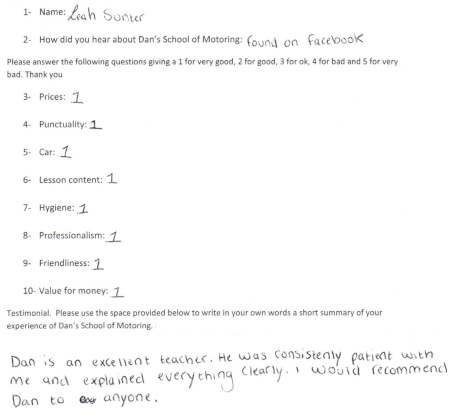 1- Name: Leah Sunter
2- How did you hear about Dan's School of Motoring: found on facebook
Please answer the following questions giving a 1 for very good, 2 for good, 3 for ok, 4 for bad and 5 for very
bad. Thank you
3- Prices: 1
4- Punctuality: 1
5- Car: 1
6- Lesson content: 1
7- Hygiene: 1
8- Professionalism: 1
9- Friendliness: 1
10- Value for money: 1
Testimonial. Please use the space provided below to write in your own words a short summary of your
experience of Dan's School of Motoring.
Dan is an excellent teacher. He was consistenly patient with
me and explained everything clearly. I would recommend
Dan to anyone.